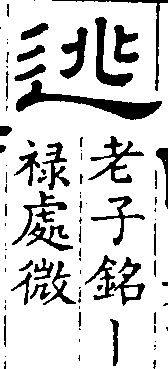 逃
老子銘丨
禄處微